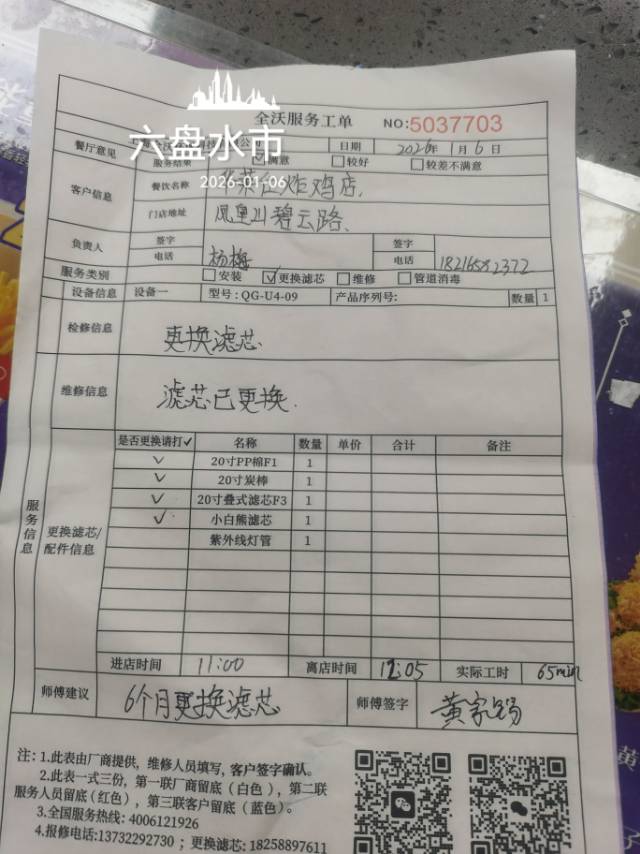 全沃服务工单 NO:5037703
六盘水市
2026-01-06
餐厅意见 日期 2026年1月6日
服务结果 ☑满意 □较好 □较差不满意
客户信息 餐饮名称 炸鸡店.
门店地址 凤凰山碧云路.
负责人 签字 电话 杨梅 签字 电话 18216582372
服务类别 □安装 ☑更换滤芯 □维修 □管道消毒
设备信息 设备一 型号:QG-U4-09 产品序列号: 数量 1
检修信息 更换滤芯.
维修信息 滤芯已更换.
服务信息
更换滤芯/配件信息
是否更换请打✓ 名称 数量 单价 合计 备注
✓ 20寸PP棉F1 1
✓ 20寸炭棒 1
✓ 20寸叠式滤芯F3 1
✓ 小白熊滤芯 1
紫外线灯管 1
进店时间 11:00 离店时间 12:05 实际工时 65min
师傅建议 6个月更换滤芯 师傅签字 黄家锡
注:1.此表由厂商提供，维修人员填写，客户签字确认。
2.此表一式三份，第一联厂商留底（白色），第二联
服务人员留底（红色），第三联客户留底（蓝色）。
3.全国服务热线: 4006121926
4.报修电话:13732292730；更换滤芯: 18258897611